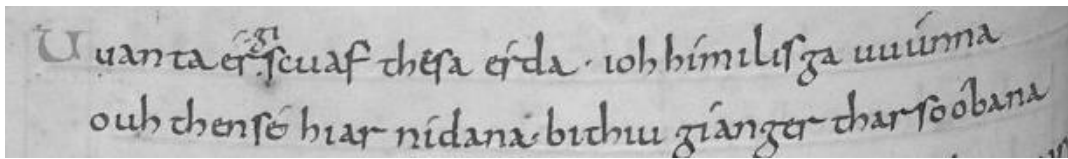 Uuanta ér giscuaf thesa erda · ioh hímilisga uuúnna
ouh then sé hiar nídana · bithiu giánger thar so óbana